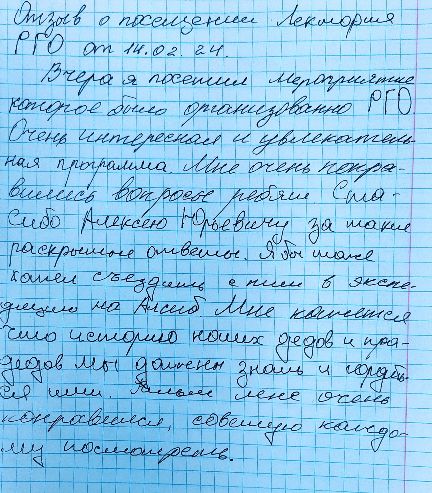 Отзыв о посещении Лектория
РГО от 14.02 24.
Вчера я посетил мероприятие
которое было организованно РГО
Очень интересная и увлекатель-
ная программа. Мне очень понра-
вились вопросы ребят. Спа-
сибо Алексею Юрьевичу за такие
раскрытые ответы. Я бы тоже
хотел съездить с ним в экспе-
дицию на Мне кажется
что историю наших дедов и пра-
дедов мы должны знать и гордить-
ся ими. Фильм мне очень
понравился, советую каждо-
му посмотреть.